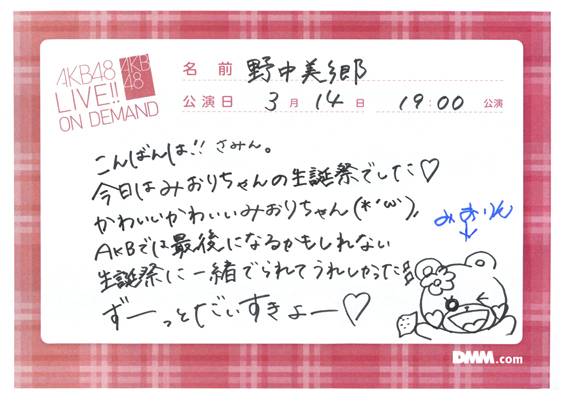 AKB48
LIVE!!
ON DEMAND
AKB
48
名前 野中美郷
公演日 3月14日 19:00公演
こんばんは!! さみん。
今日はみおりちゃんの生誕祭でした♡
かわいいかわいいみおりちゃん(*'ω')
AKBでは最後になるかもしれない
生誕祭に一緒でられてうれしかった
ずーっとだいすきよー♡
みおりん
DMM.com